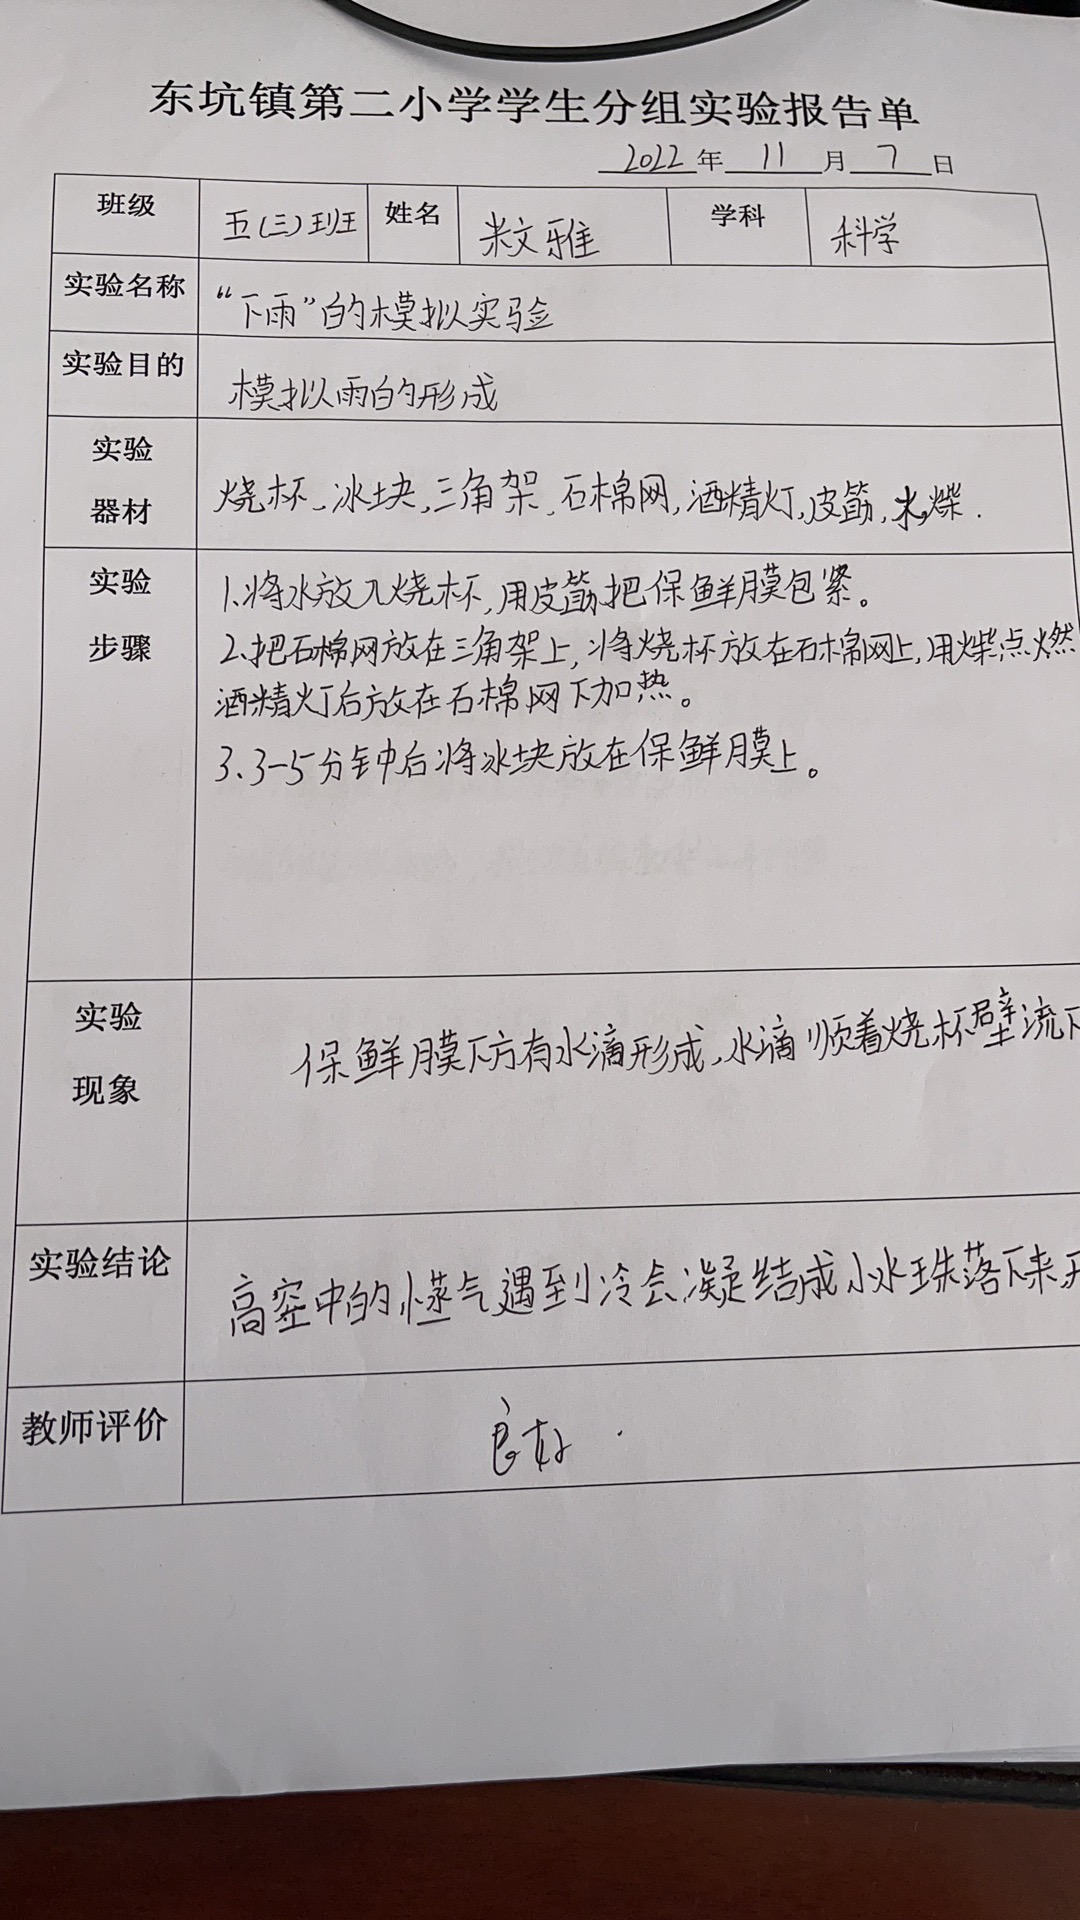 东坑镇第二小学学生分组实验报告单
2022年11月7日
班级 五(三)班 姓名 文雅 学科 科学
实验名称 “下雨”的模拟实验
实验目的 模拟雨的形成
实验器材 烧杯、冰块、三角架、石棉网,酒精灯,皮筋,火柴.
实验步骤 1.将水放入烧杯,用皮筋把保鲜膜包紧。
2.把石棉网放在三角架上,将烧杯放在石棉网上,用火柴点燃
酒精灯后放在石棉网下加热。
3、3-5分钟后将冰块放在保鲜膜上。
实验现象 保鲜膜下方有水滴形成,水滴顺着烧杯壁流下
实验结论 高空中的蒸气遇到冷会凝结成小水珠落下来
教师评价 良好.